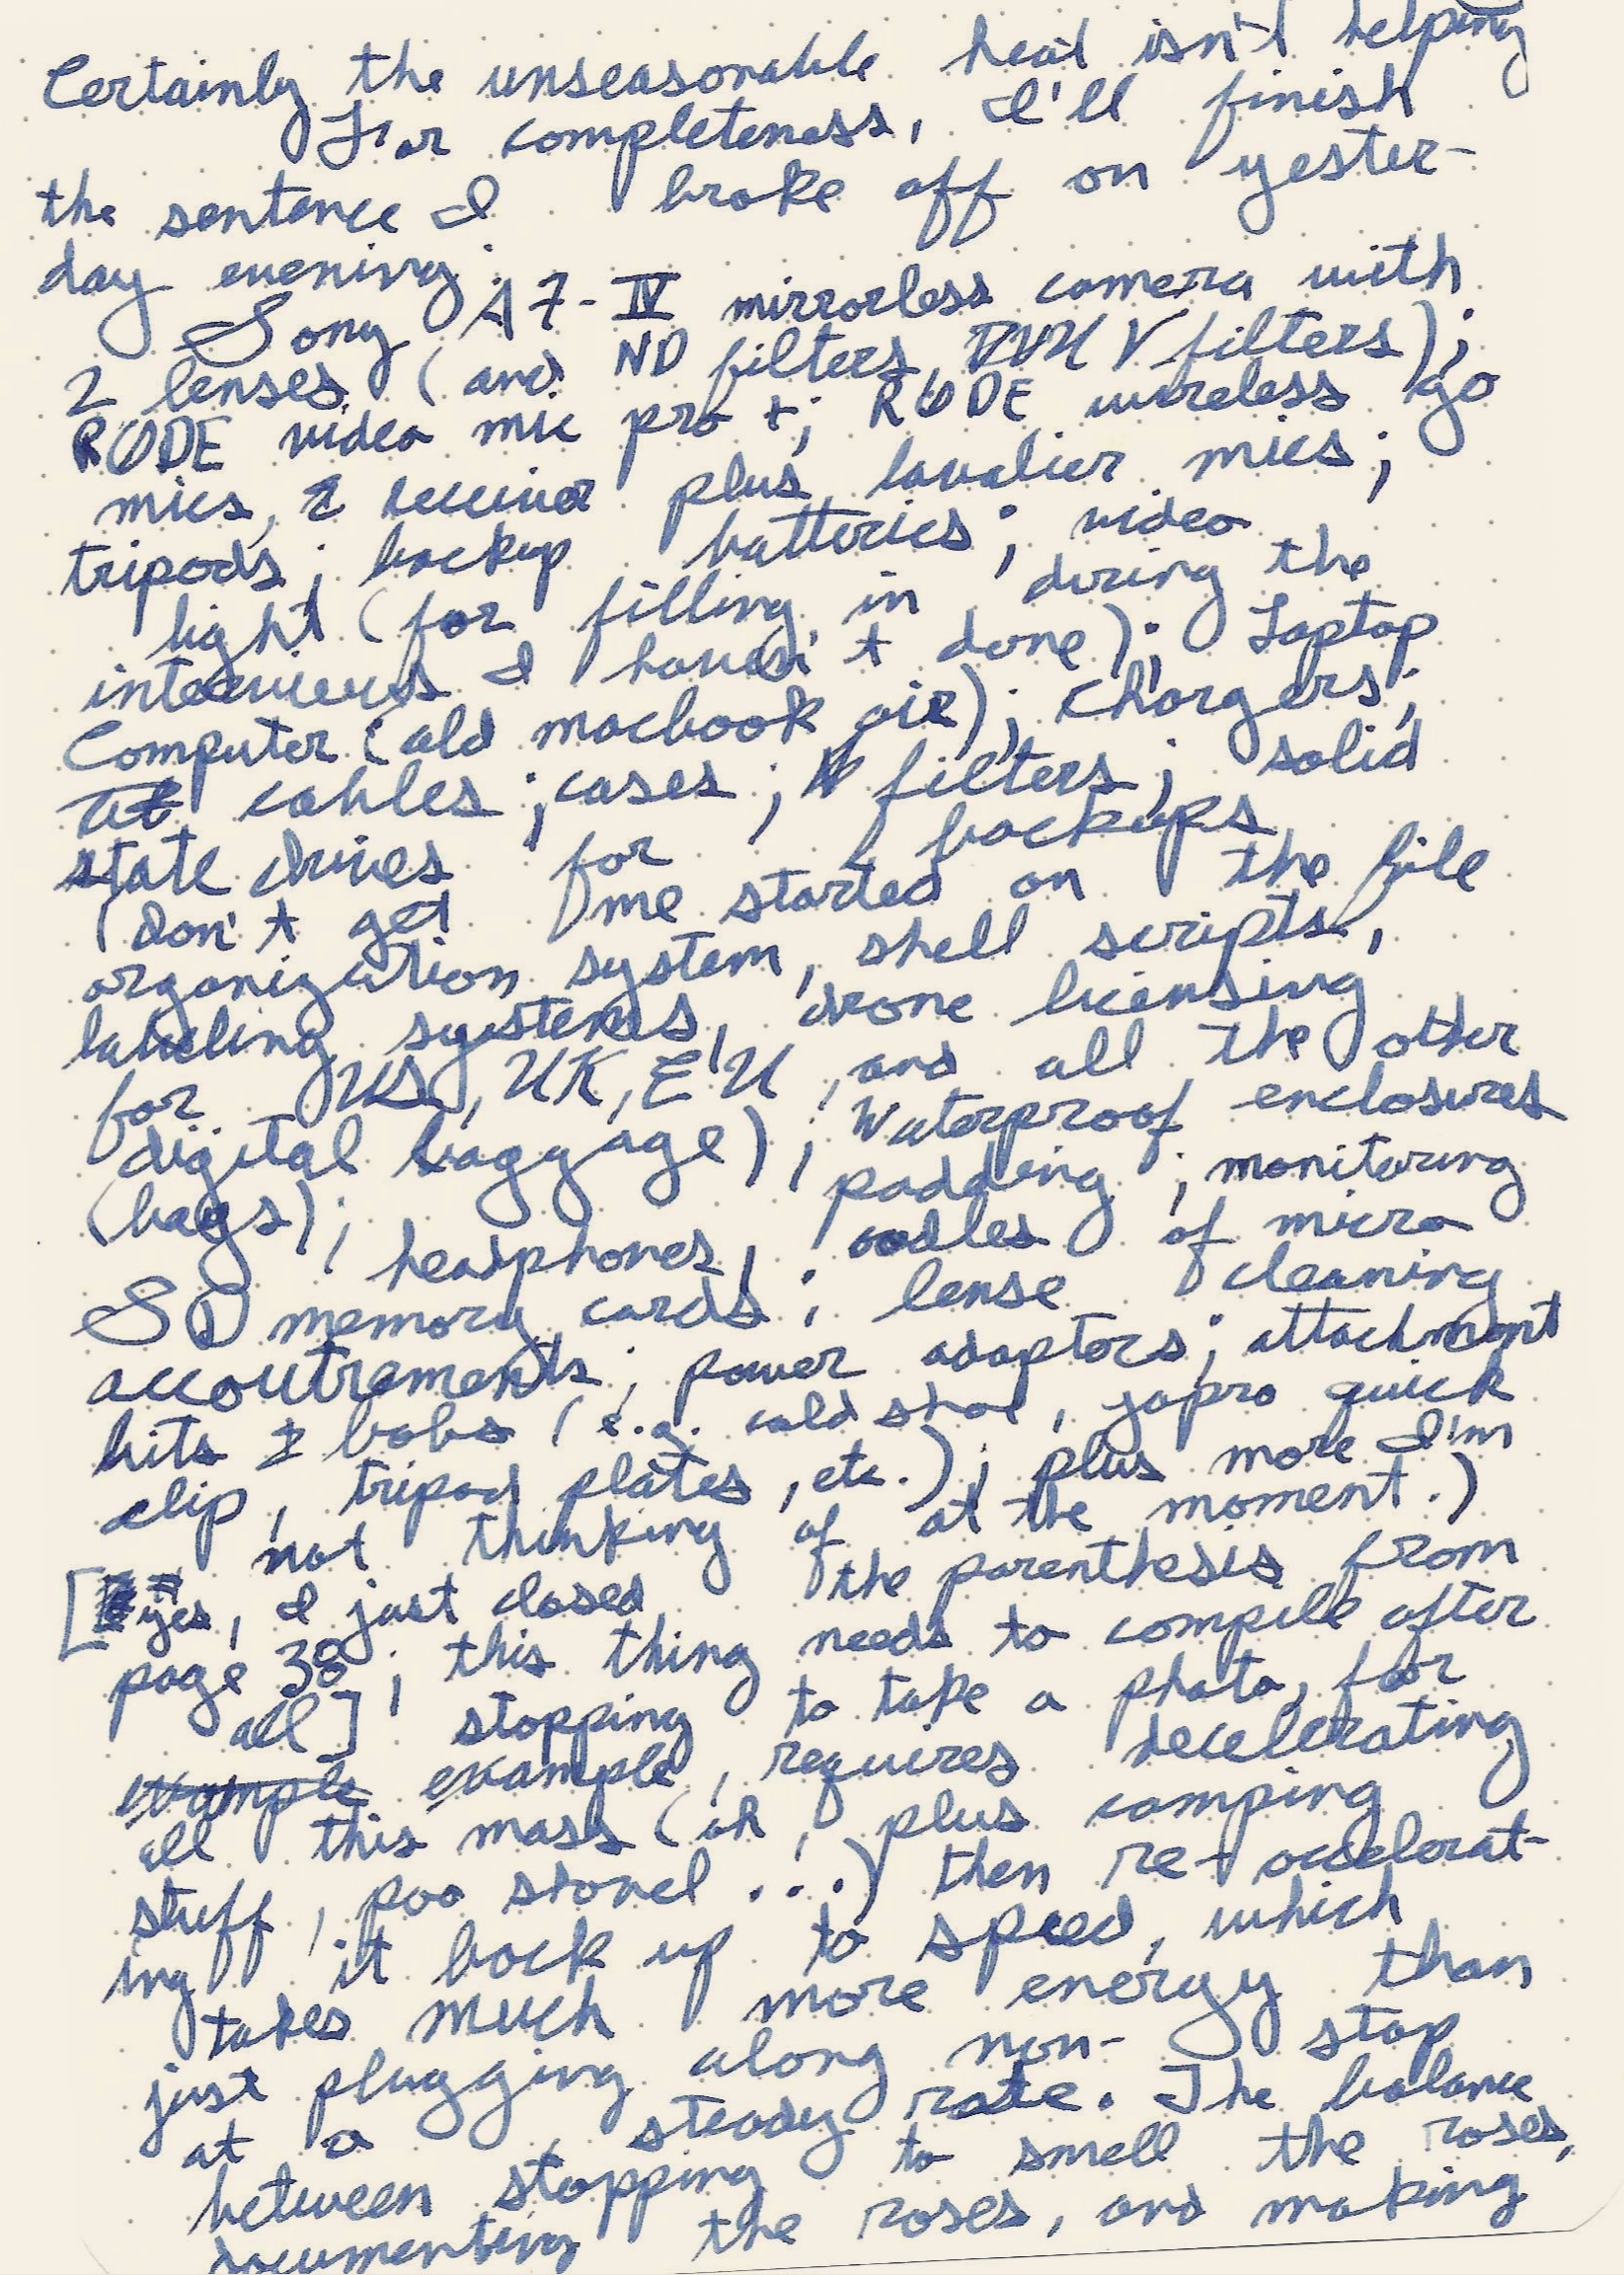 Certainly the unseasonable heat isn't helping
For completeness, I'll finish
the sentence I broke off on yester-
day evening:
Sony A7-IV mirrorless camera with
2 lenses (and ND filters, UV filters);
RODE video mic pro +; RODE wireless go
mics, & receiver plus lavalier mics;
tripods; backup batteries; video
light (for filling in during the
interviews I haven't done); Laptop
Computer (old macbook air); chargers;
cables; cases; filters; solid
state drives for backups
(don't get me started on the file
organization system, shell scripts,
labeling systems, drone licensing
for US, UK, EU, and all the other
digital baggage); Waterproof enclosures
(bags); padding; monitoring
headphones, oodles of micro
SD memory cards; lense cleaning
accoutrements; power adaptors; attachment
bits & bobs (e.g. cold shoe, gopro quick
clip, tripod plates, etc.); plus more I'm
not thinking of at the moment.)
[yes, I just closed the parenthesis from
page 38; this thing needs to compile after
all] stopping to take a photo, for
example example, requires decelerating
all this mass (oh, plus camping
stuff, poo shovel ...) then re-accelerat-
ing it back up to speed, which
takes much more energy than
just plugging along non-stop
at a steady rate. The balance
between stopping to smell the roses,
documenting the roses, and making